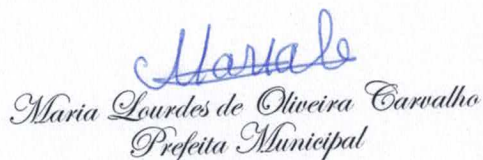 Maria L
Maria Lourdes de Oliveira Carvalho
Prefeita Municipal